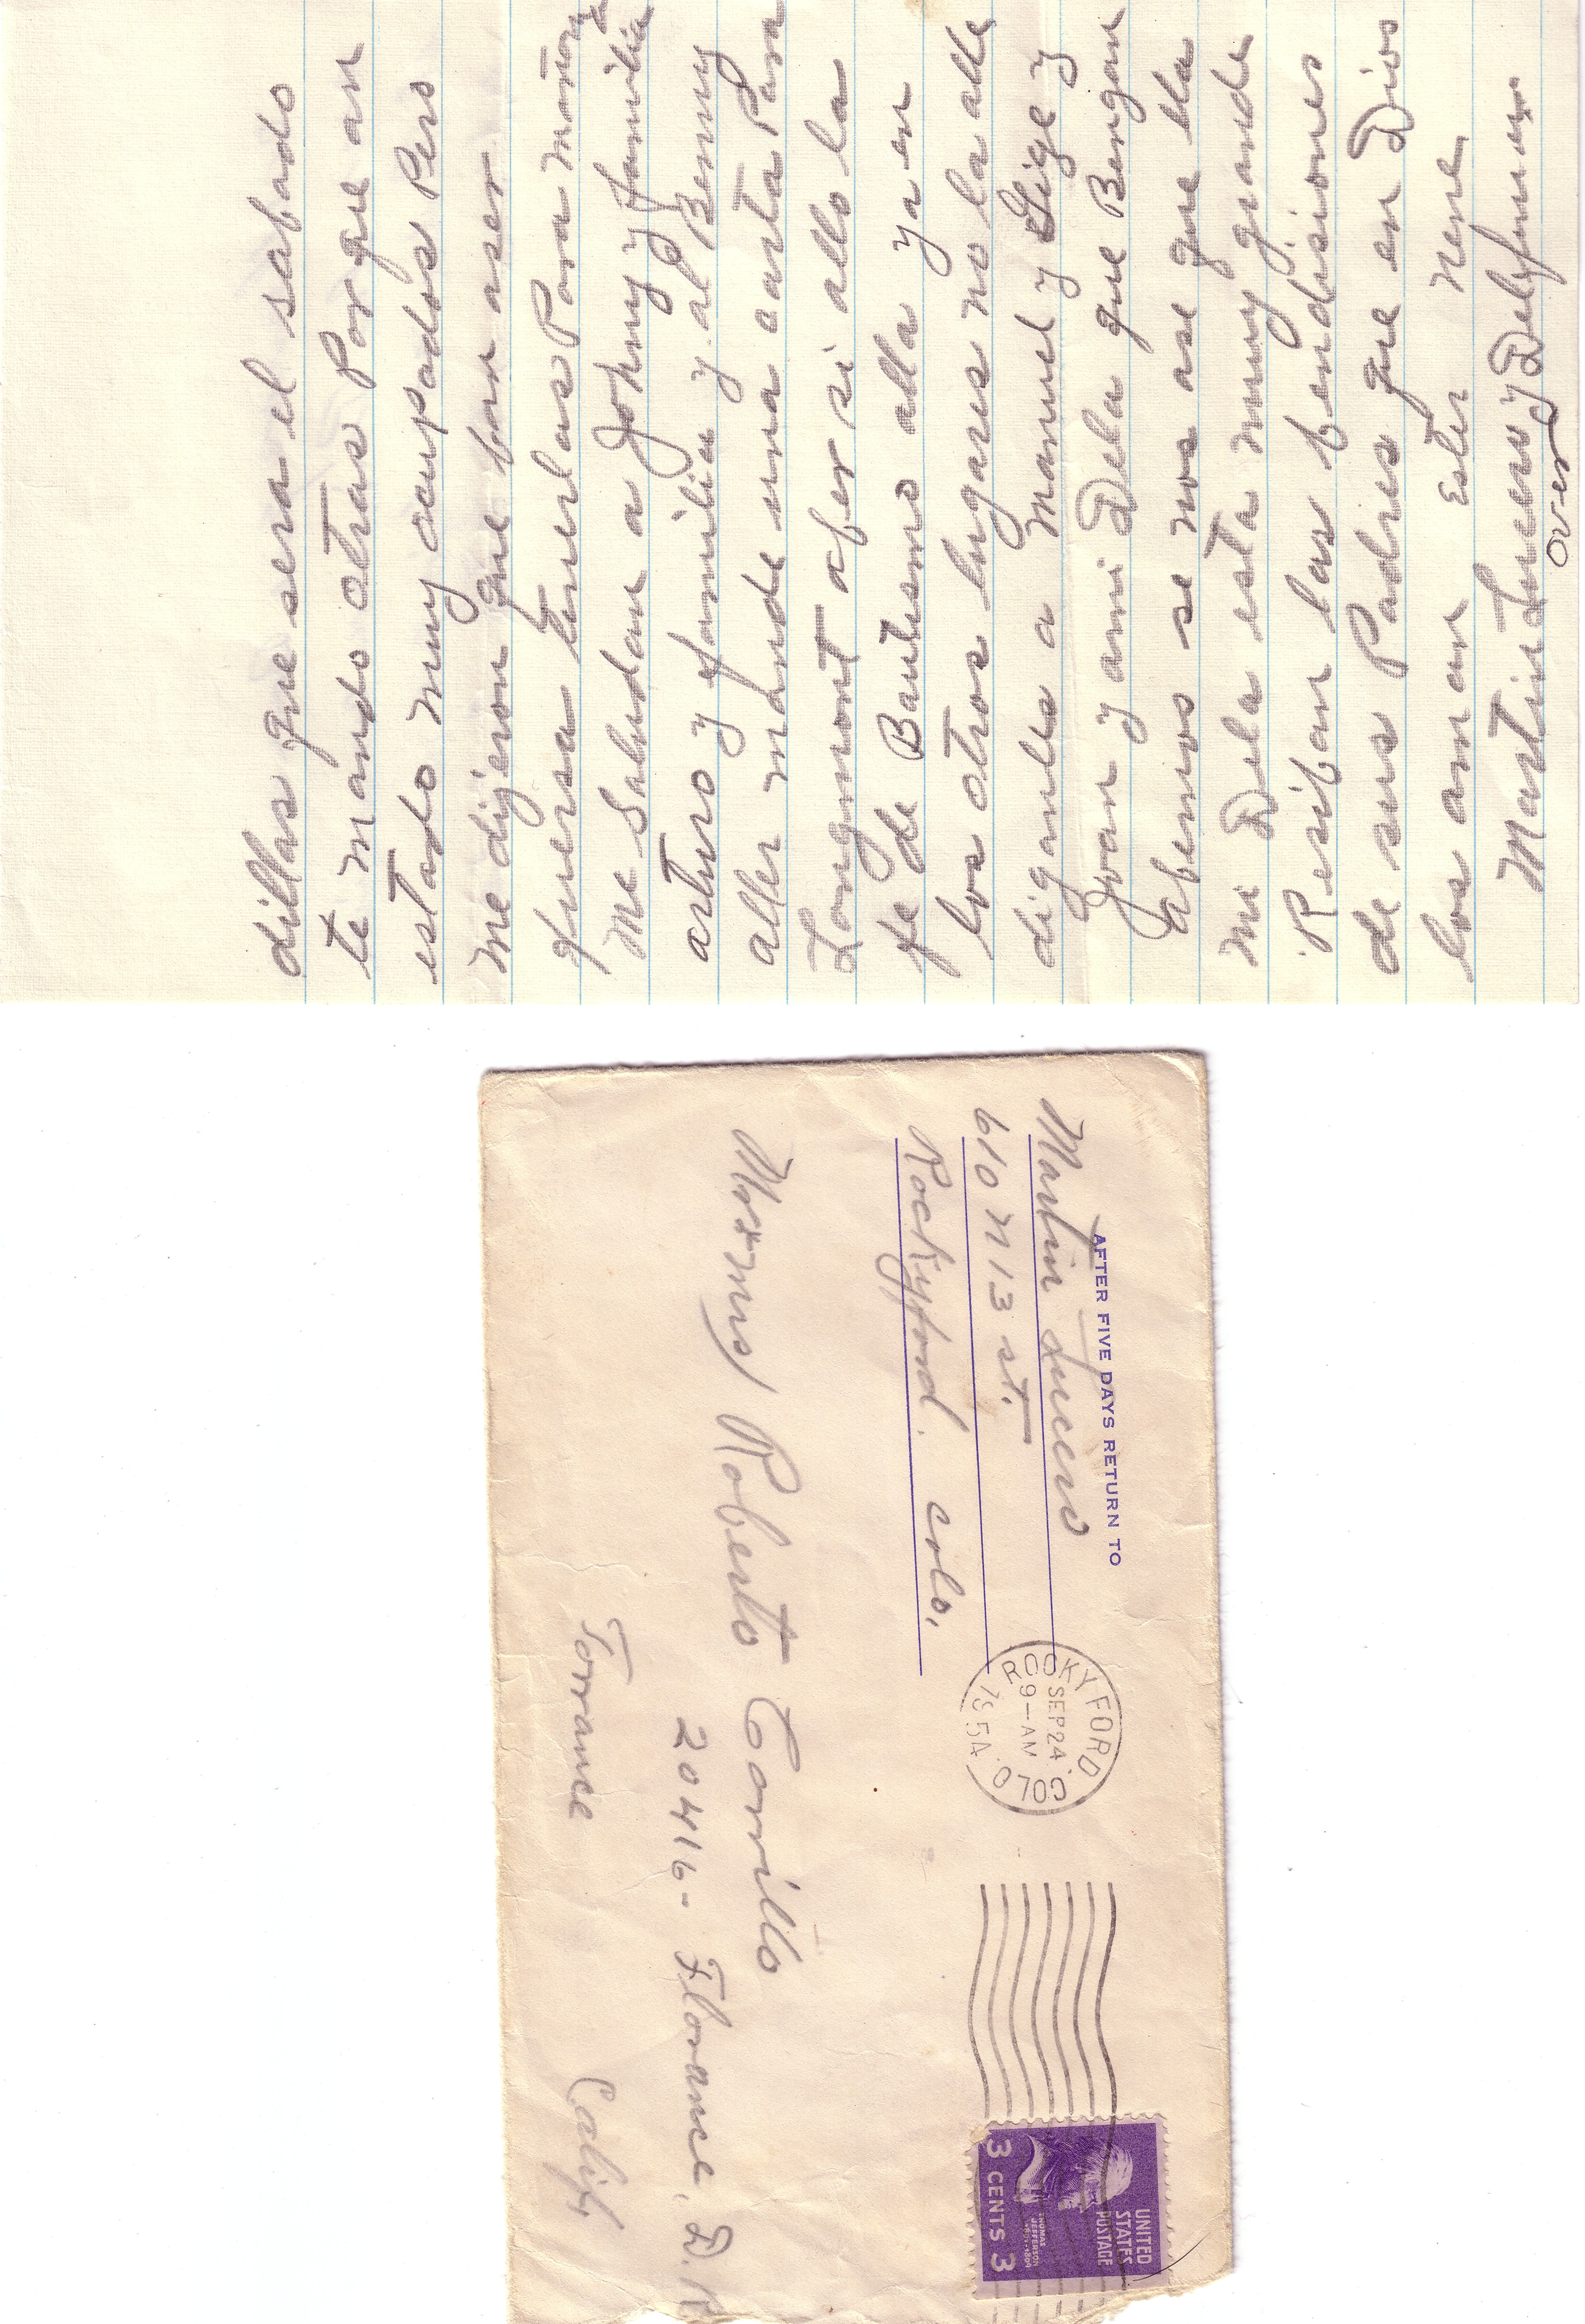 dillas que sera el sabado
te mando otras Porque an
estado muy ocupados Pero
me dijeron que ban aser
fuersa tenerlas Para mañana
me Saludan a Johnny y familia
arturo y familia y al Benny
aller mande una carta Para
Longmont aber si allo la
fe de Bautismo alla ya en
los otros lugares no la alle
diganle a Manuel y Lige y
Joan y ami Dela que Bengan
Abernos se nos ase que lla
mi Dela esta muy grande
Resiban las bendisiones
de sus Padres que en Dios
los aman Ester nene
Martin Lucero y Delfina
over
AFTER FIVE DAYS RETURN TO
Martin Lucero
610 N 13 st.
Rockyford. colo.
ROCKY FORD. COLO.
SEP 24
9-AM
195A
UNITED
STATES
POSTAGE
THOMAS
JEFFERSON
3 CENTS 3
Mr. Roberto Carrillo
20416- Florance, D.R
Torrance Calif.